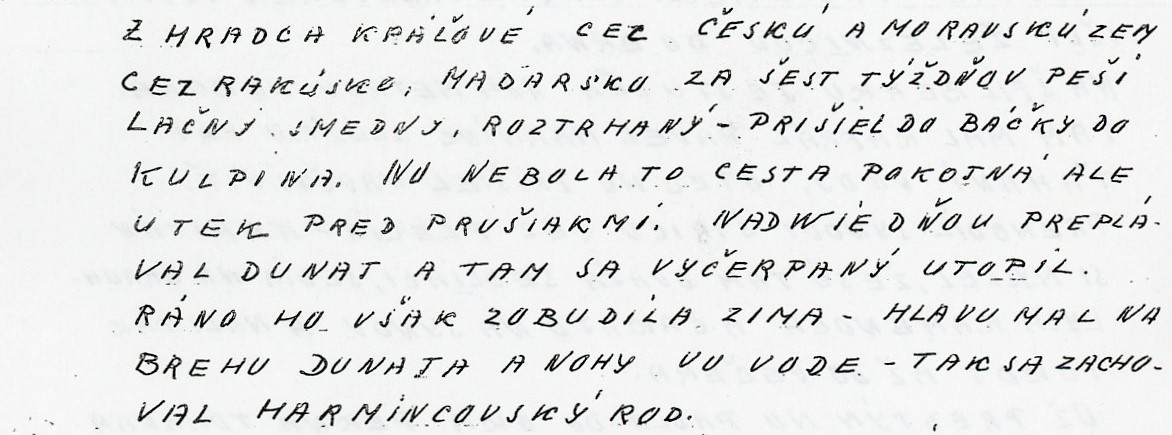 Z HRADCA KRÁĽOVÉ CEZ ČESKÚ A MORAVSKÚ ZEM
CEZ RAKÚSKO, MAĎARSKO ZA ŠEST TÝŽDŇOV PEŠÍ
LAČNÝ SMEDNÝ, ROZTRHANÝ - PRIŠIEL DO BÁČKY DO
KULPÍNA. NO NEBOLA TO CESTA POKOJNÁ ALE
ÚTEK PRED PRUŠIAKMI. NADWIEDŇOU PREPLÁ-
VAL DUNAJ A TAM SA VYČERPANÝ UTOPIL.
RÁNO HO VŠAK ZOBUDILA ZIMA - HLAVU MAL NA
BREHU DUNAJA A NOHY VO VODE - TAK SA ZACHO-
VAL HARMINCOVSKÝ ROD.